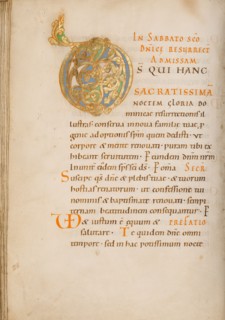 IN SABBATO SCO
DNICE RESURRECT
AD MISSAM
DS QUI HANC
SACRATISSIMA
NOCTEM GLORIA DO
minicae resurrectionis il
lustras conserva in nova familiae tuae, p
genie adoptionis spm quem dedisti. Ut
corpore & mente renovati. puram tibi ex
hibeant servitutem. P eundem dnm nrm
In unitate eiusdem sps sci ds. P omnia SECR
Suscipe qs dne & plebis tuae & tuorum
hostias renatorum. ut confessione tui
nominis & baptismate renovati. sempi
ternam beatitudinem consequantur. P
Vere dignum & iustum est equum & PREFATIO
salutare. Te quidem dne omni
tempore. sed in hac potissimum nocte